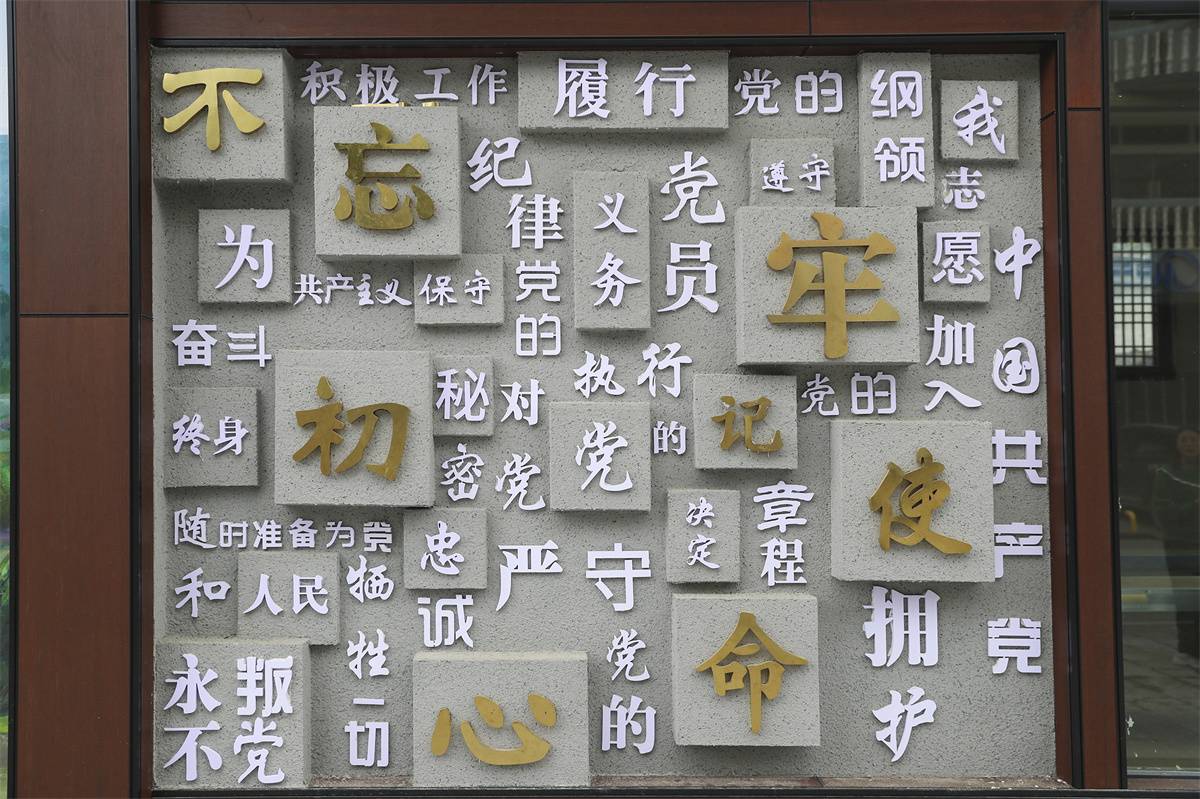 不忘初心
牢记使命
我志愿加入
中国共产党
拥护
党的纲领
遵守
党的章程
履行
党员义务
执行
党的决定
严守党的
纪律
保守
党的秘密
对党忠诚
积极工作
为共产主义
奋斗终身
随时准备为党
和人民
牺牲一切
永不叛党